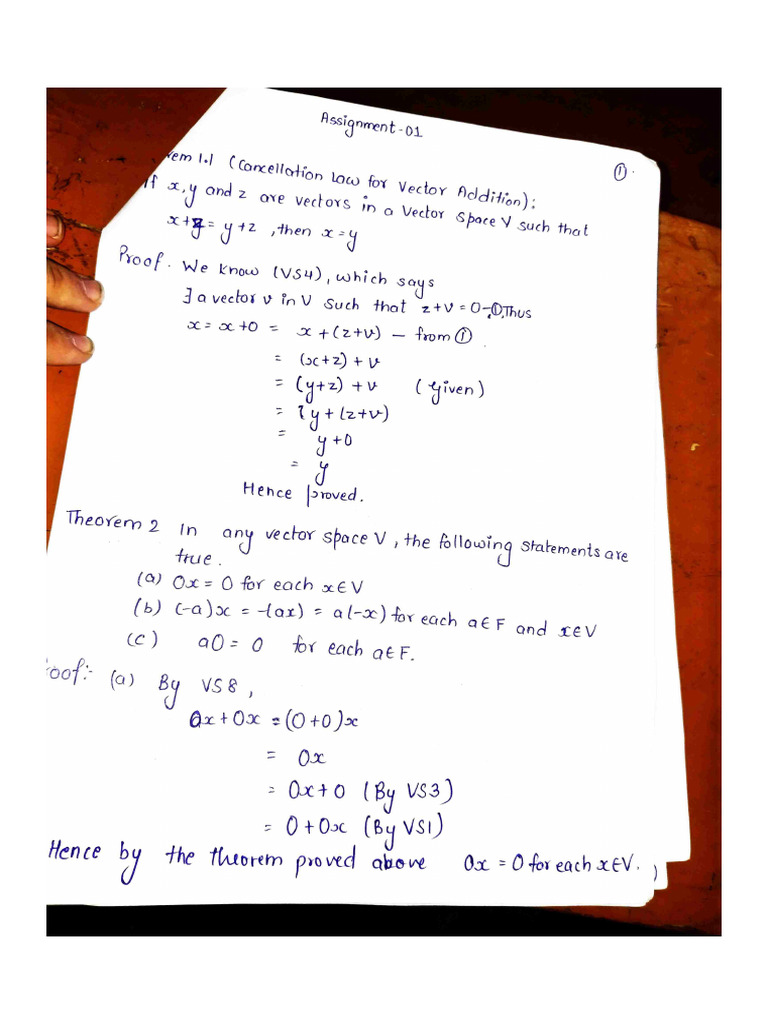 Assignment-01
①.
rem 1.1 (Cancellation Law for Vector Addition):
If x, y and z are vectors in a vector space V such that
x+z = y+z, then x=y
Proof. We know (VS4), which says
∃ a vector v in V such that z+v=0-①, Thus
x = x+0 = x+(z+v) - from ①.
= (x+z)+v
= (y+z)+v (Given)
= y+(z+v)
= y+0
= y
Hence proved.
Theorem 2 In any vector space V, the following statements are
true.
(a) 0x = 0 for each x∈V
(b) (-a)x = -(ax) = a(-x) for each a∈F and x∈V
(c) a0 = 0 for each a∈F.
roof:- (a) By VS8,
0x+0x = (0+0)x
= 0x
= 0x+0 (By VS3)
= 0+0x (By VS1)
Hence by the theorem proved above 0x = 0 for each x∈V.